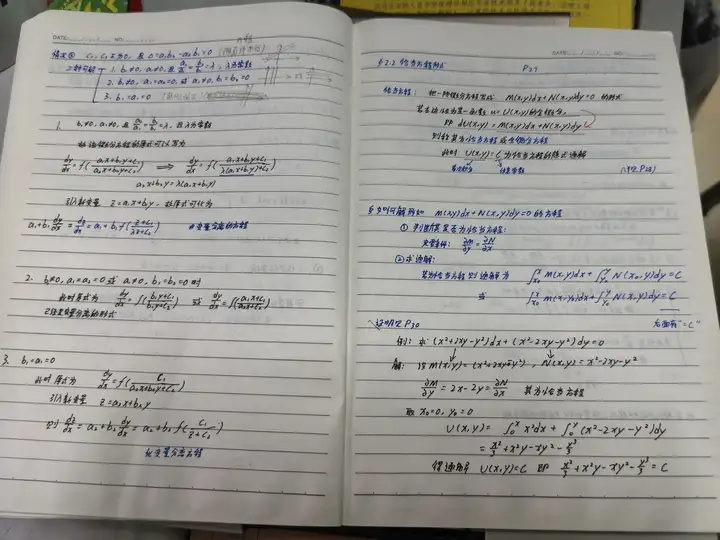 DATE:
情况② C₁, C₂ 不为0, 且 D=a₁b₂-a₂b₁=0
三种可能 1. b₁≠0, a₁≠0, 且 a₂/a₁ = b₂/b₁ = λ, λ为常数
2. b₁≠0, a₁=a₂=0 或 a₁≠0, b₁=b₂=0
3. b₁=a₁=0
1. b₁≠0, a₁≠0, 且 a₂/a₁ = b₂/b₁ = λ, 且λ为常数
dy/dx = f((a₁x+b₁y+C₁)/(a₂x+b₂y+C₂)) ⟹ dy/dx = f((a₁x+b₁y+C₁)/(λ(a₁x+b₁y)+C₂))
a₂x+b₂y=λ(a₁x+b₁y)
引入新变量 z=a₁x+b₁y, 故原式可化为
a₁+b₁ dy/dx = dz/dx = a₁+b₁f((z+C₁)/(λz+C₂)) 为变量分离的方程
2. b₁≠0, a₁=a₂=0 或 a₁≠0, b₁=b₂=0 时
此时原式为 dy/dx = f((b₁y+C₁)/(b₂y+C₂)) 或 dy/dx = f((a₁x+C₁)/(a₂x+C₂))
已经是变量分离的形式
3. b₁=a₁=0
此时原式为 dy/dx = f(C₁/(a₂x+b₂y+C₂))
引入新变量 z=a₂x+b₂y
则 dz/dx = a₂+b₂ dy/dx = a₂+b₂ f(C₁/(z+C₂))
为变量分离方程
DATE:
§2.2 恰当方程形式 P27
恰当方程: 把一阶微分方程写成 M(x,y)dx+N(x,y)dy=0 的形式
若左边恰为某一函数 u=U(x,y)的全微分,
即 dU(x,y)=M(x,y)dx+N(x,y)dy
则称其为恰当方程或全微分方程
此时 U(x,y)=C 为恰当方程的隐式通解
任意常数
如何解形如 M(x,y)dx+N(x,y)dy=0 的方程
① 判断其是否为恰当方程:
充要条件: ∂M/∂y = ∂N/∂x
② 求通解:
若为恰当方程 则通解为 ∫ₓ₀ˣ M(x,y)dx+∫ᵧ₀ʸ N(x₀,y)dy=C
或 ∫ₓ₀ˣ M(x,y₀)dx+∫ᵧ₀ʸ N(x,y)dy=C
证明见P30 后面有"=C"
例: 求 (x²+2xy-y²)dx+(x²-2xy-y²)dy=0
解: 设 M(x,y)=(x²+2xy-y²), N(x,y)=x²-2xy-y²
∂M/∂y = 2x-2y = ∂N/∂x 其为恰当方程
取 x₀=0, y₀=0
U(x,y)= ∫₀ˣ x²dx+∫₀ʸ (x²-2xy-y²)dy
= x³/3+x²y-xy²-y³/3
得通解 U(x,y)=C 即 x³/3+x²y-xy²-y³/3=C